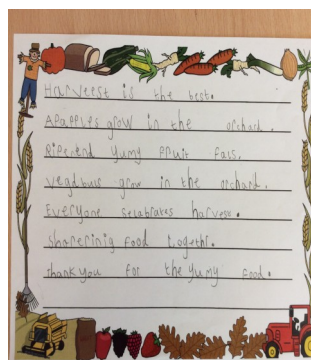 Harveest is the best.
Apapples grow in the orchard.
Riperend yumy fruit fals.
vegdbuls grow in the orchard.
Everyone selabrates harvest.
Sharerinig food togethr.
thank you for the yumy food.